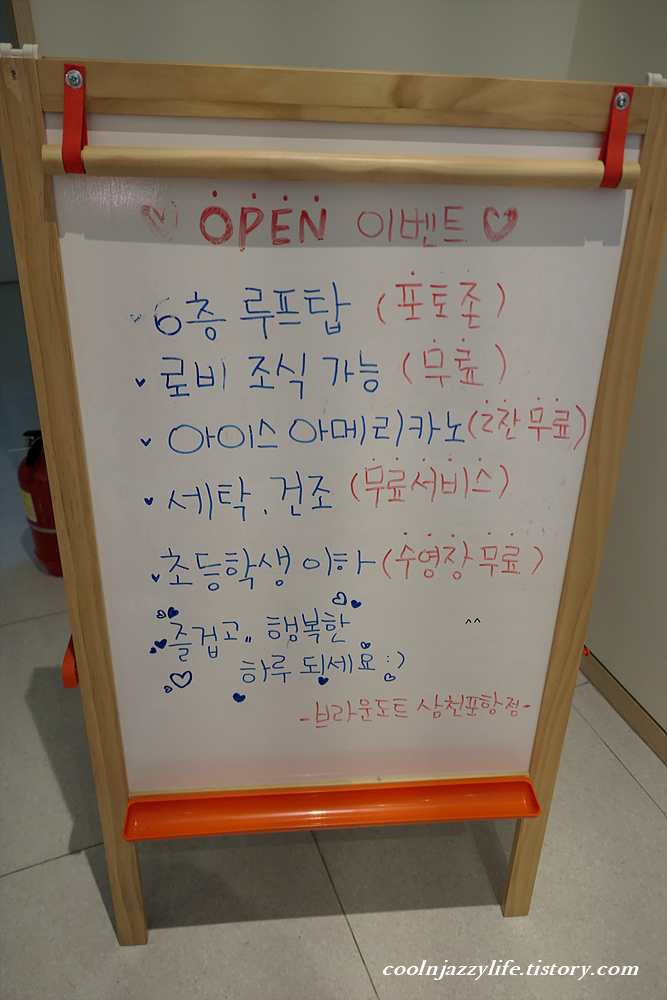 ♡ OPEN 이벤트 ♡
6층 루프탑 (포토존)
로비 조식 가능 (무료)
아이스 아메리카노 (2잔 무료)
세탁, 건조 (무료서비스)
초등학생 이하 (수영장 무료)
즐겁고,, 행복한 ^^
하루 되세요 :)
-브라운도트 삼천포항점-
coolnjazzylife.tistory.com